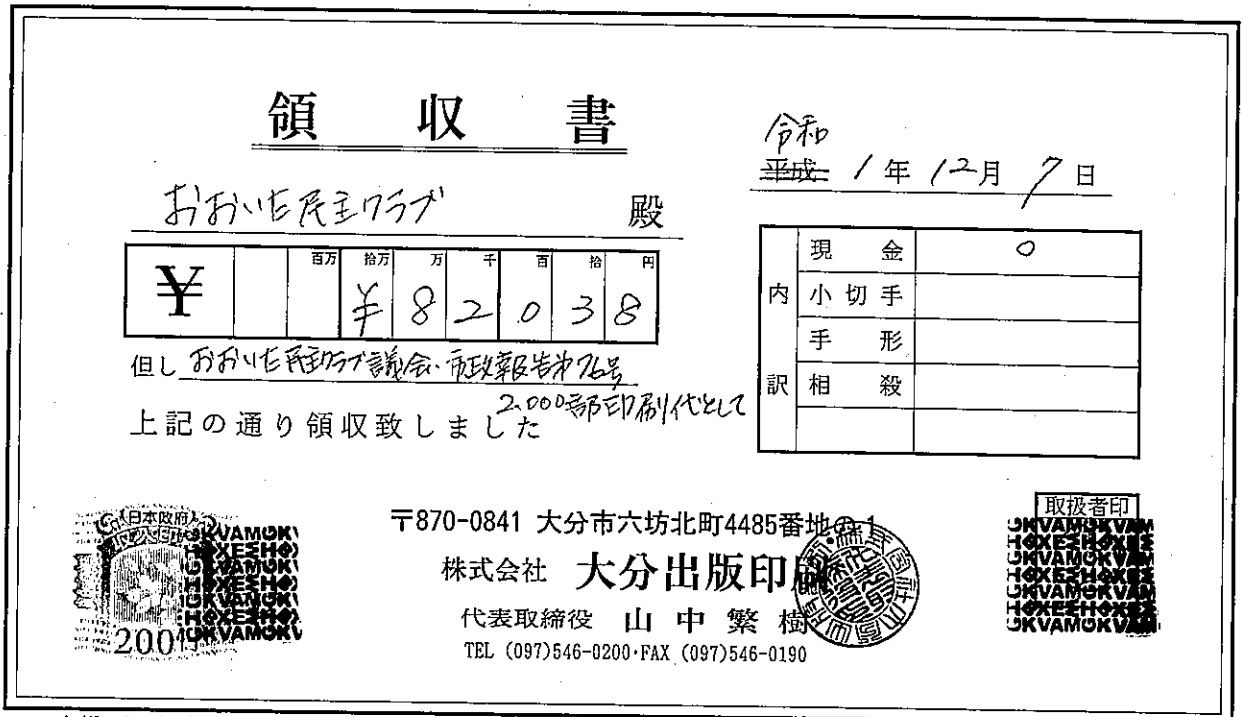 領収書
令和
平成 1年12月7日
おおいた民主クラブ 殿
百万 拾万 万 千 百 拾 円
¥ ¥82038
但し おおいた民主クラブ議会・市政報告第76号
2,000部印刷代として
上記の通り領収致しました
内訳
現金 ○
小切手
手形
相殺
日本政府
200円
〒870-0841 大分市六坊北町4485番地の1
株式会社 大分出版印刷
代表取締役 山中繁樹
TEL (097)546-0200・FAX (097)546-0190
取扱者印